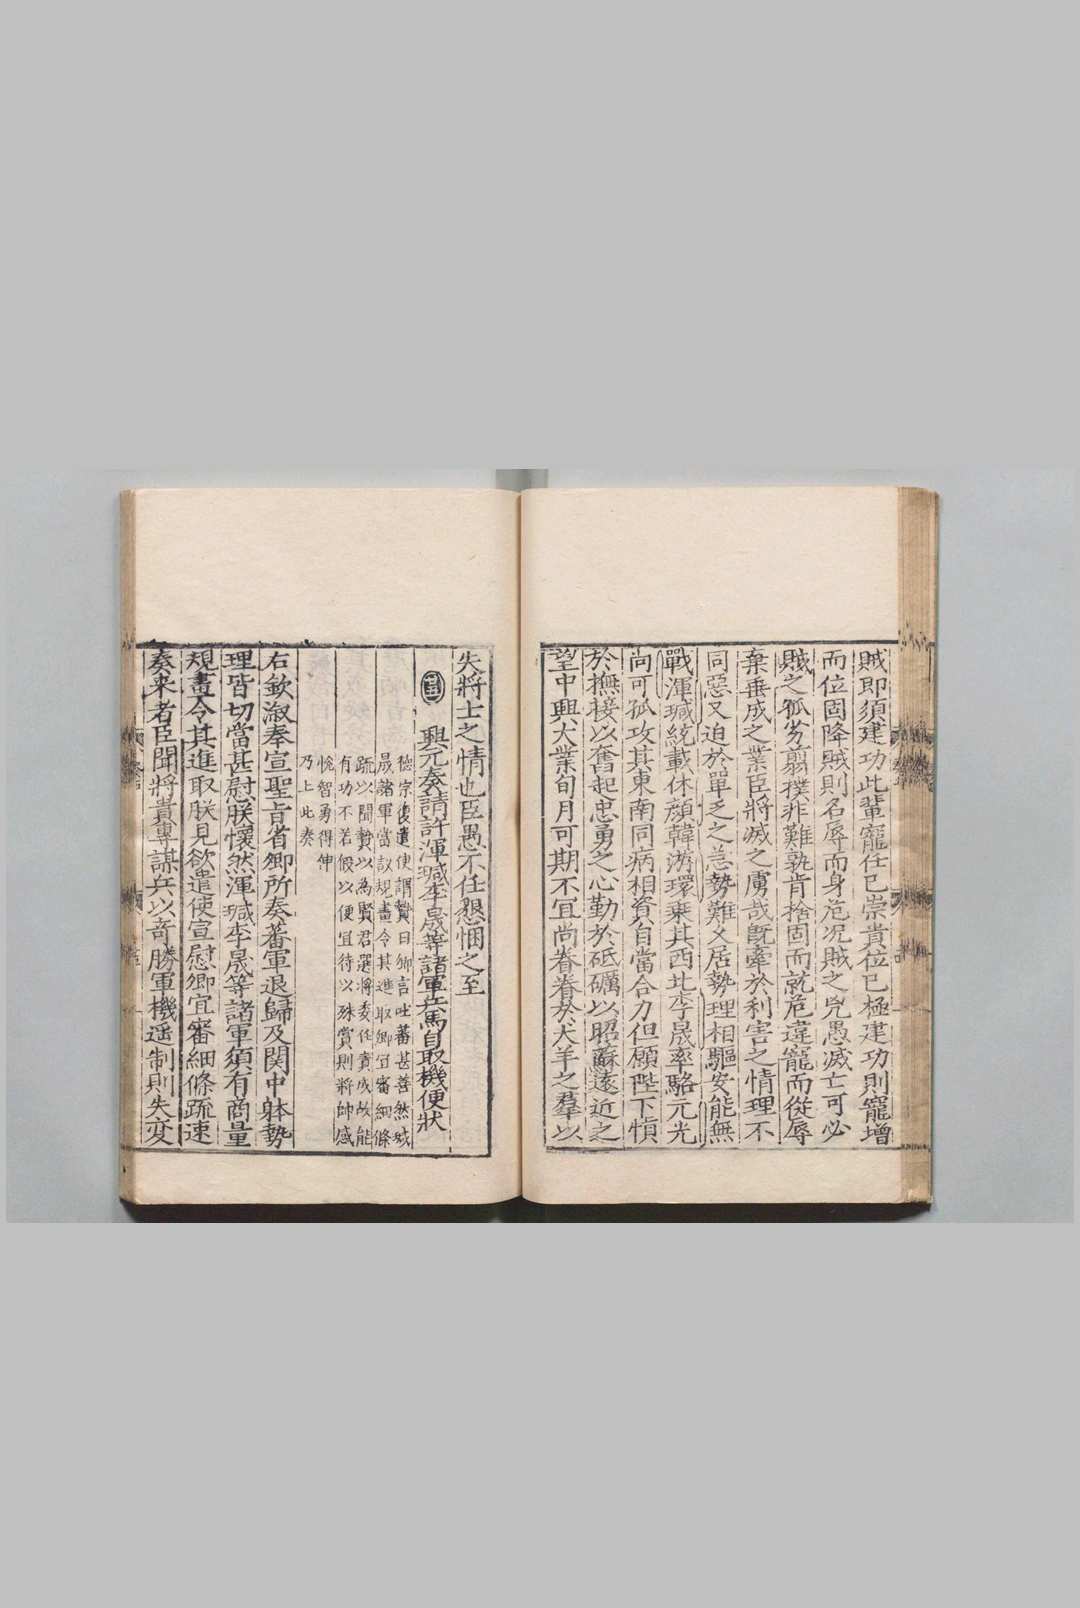 賊即須建功此輩寵任已崇貴位已極建功則寵增
而位固降賊則名辱而身危况賊之兇愚滅亡可必
賊之孤劣翦撲非難孰肯捨固而就危違寵而從辱
棄垂成之業臣將滅之虜哉旣牽於利害之情理不
同惡又迫於單乏之急勢難久居勢理相驅安能無
戰渾瑊統載休顔韓游環乗其西北李晟率駱元光
尚可孤攻其東南同病相資自當合力但願陛下愼
於撫接以奮起忠勇之心勤於砥礪以昭蘇遠近之
望中興大業旬月可期不宜尚眷眷於犬羊之羣以
失將士之情也臣愚不任懇悃之至
興元奏請許渾瑊李晟等諸軍兵馬自取機便狀
德宗復遣使謂贄曰卿言吐蕃甚善然瑊
晟諸軍當議規畫令其進取卿宜審細條
䟽以聞贄以爲賢君選將委任責成故能
有功不若假以便宜待以殊賞則將帥感
恱智勇得伸
乃上此奏
右欽溆奉宣聖旨省卿所奏蕃軍退歸及関中躰勢
理皆切當甚慰朕懷然渾瑊李晟等諸軍須有商量
規畫令其進取朕見欲遣使宣慰卿宜審細條疏速
奏来者臣聞將貴專謀兵以奇勝軍機遥制則失变